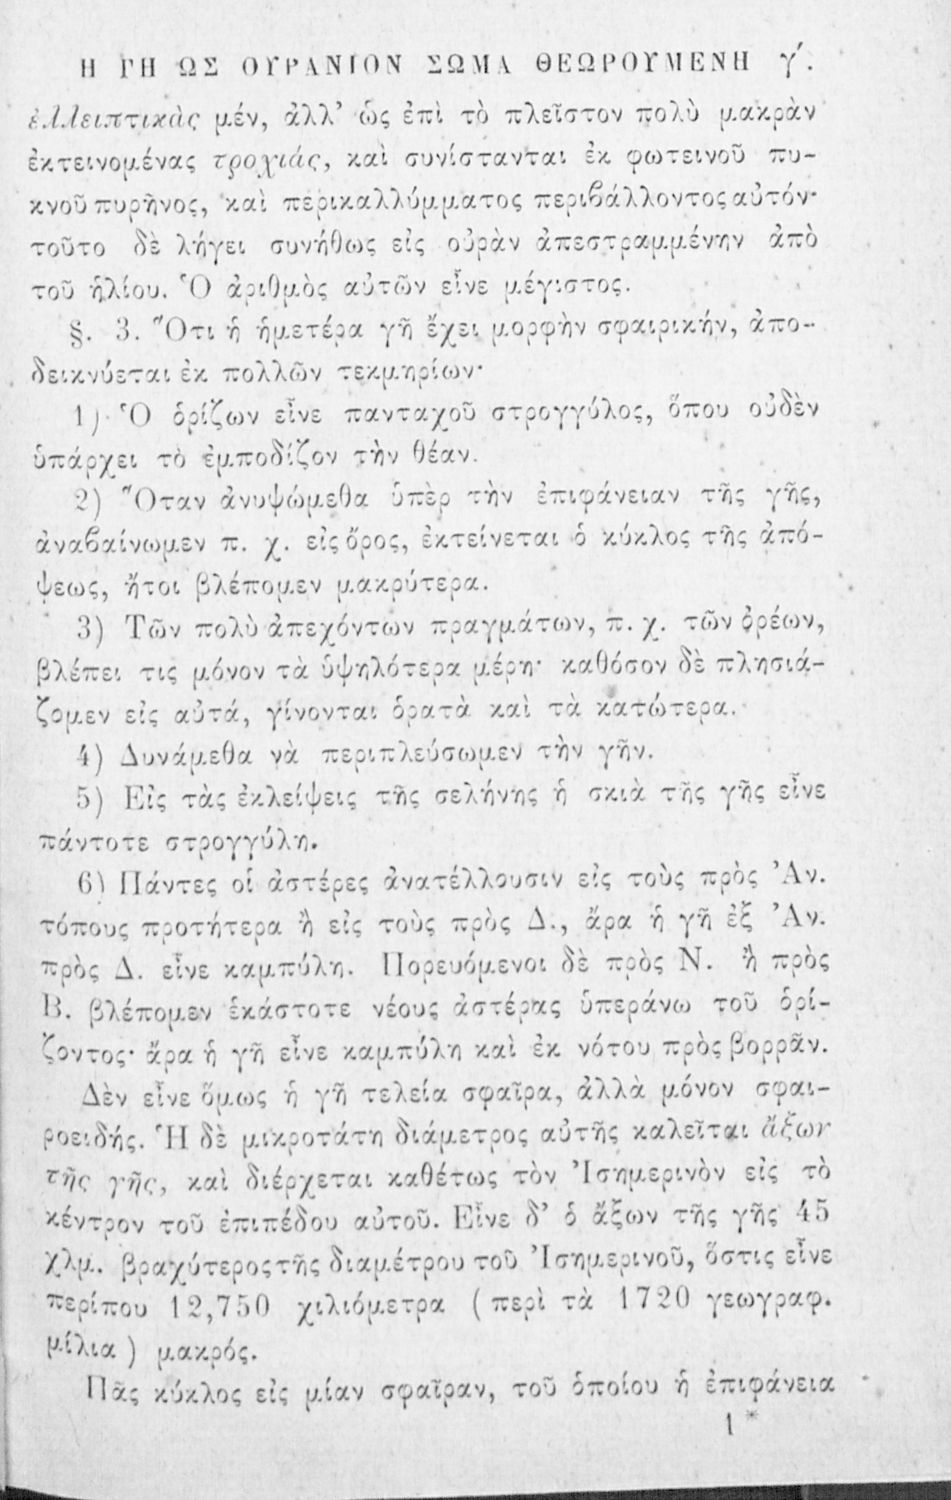 Η ΓΗ ΩΣ ΟΥΡΑΝΙΟΝ ΣΩΜΑ ΘΕΩΡΟΥΜΕΝΗ γ΄.
ἐλλειπτικὰς μέν, ἀλλ’ ὡς ἐπὶ τὸ πλεῖστον πολὺ μακρὰν
ἐκτεινομένας τροχιάς, καὶ συνίστανται ἐκ φωτεινοῦ πυ-
κνοῦ πυρῆνος, καὶ περικαλλύμματος περιβάλλοντος αὐτόν·
τοῦτο δὲ λήγει συνήθως εἰς οὐρὰν ἀπεστραμμένην ἀπὸ
τοῦ ἡλίου. Ὁ ἀριθμὸς αὐτῶν εἶνε μέγιστος.
§. 3. Ὅτι ἡ ἡμετέρα γῆ ἔχει μορφὴν σφαιρικήν, ἀπο-
δεικνύεται ἐκ πολλῶν τεκμηρίων·
1) Ὁ ὁρίζων εἶνε πανταχοῦ στρογγύλος, ὅπου οὐδὲν
ὑπάρχει τὸ ἐμποδίζον τὴν θέαν.
2) Ὅταν ἀνυψώμεθα ὑπὲρ τὴν ἐπιφάνειαν τῆς γῆς,
ἀναβαίνωμεν π. χ. εἰς ὄρος, ἐκτείνεται ὁ κύκλος τῆς ἀπό-
ψεως, ἤτοι βλέπομεν μακρύτερα.
3) Τῶν πολὺ ἀπεχόντων πραγμάτων, π. χ. τῶν ὀρέων,
βλέπει τις μόνον τὰ ὑψηλότερα μέρη· καθόσον δὲ πλησιά-
ζομεν εἰς αὐτά, γίνονται ὁρατὰ καὶ τὰ κατώτερα.
4) Δυνάμεθα νὰ περιπλεύσωμεν τὴν γῆν.
5) Εἰς τὰς ἐκλείψεις τῆς σελήνης ἡ σκιὰ τῆς γῆς εἶνε
πάντοτε στρογγύλη.
6) Πάντες οἱ ἀστέρες ἀνατέλλουσιν εἰς τοὺς πρὸς Ἀν.
τόπους προτήτερα ἢ εἰς τοὺς πρὸς Δ., ἄρα ἡ γῆ ἐξ Ἀν.
πρὸς Δ. εἶνε καμπύλη. Πορευόμενοι δὲ πρὸς Ν. ἢ πρὸς
Β. βλέπομεν ἑκάστοτε νέους ἀστέρας ὑπεράνω τοῦ ὁρί-
ζοντος· ἄρα ἡ γῆ εἶνε καμπύλη καὶ ἐκ νότου πρὸς βορρᾶν.
Δὲν εἶνε ὅμως ἡ γῆ τελεία σφαῖρα, ἀλλὰ μόνον σφαι-
ροειδής. Ἡ δὲ μικροτάτη διάμετρος αὐτῆς καλεῖται ἄξων
τῆς γῆς, καὶ διέρχεται καθέτως τὸν Ἰσημερινὸν εἰς τὸ
κέντρον τοῦ ἐπιπέδου αὐτοῦ. Εἶνε δ’ ὁ ἄξων τῆς γῆς 45
χλμ. βραχύτερος τῆς διαμέτρου τοῦ Ἰσημερινοῦ, ὅστις εἶνε
περίπου 12,750 χιλιόμετρα ( περὶ τὰ 1720 γεωγραφ.
μίλια ) μακρός.
Πᾶς κύκλος εἰς μίαν σφαῖραν, τοῦ ὁποίου ἡ ἐπιφάνεια
1 *